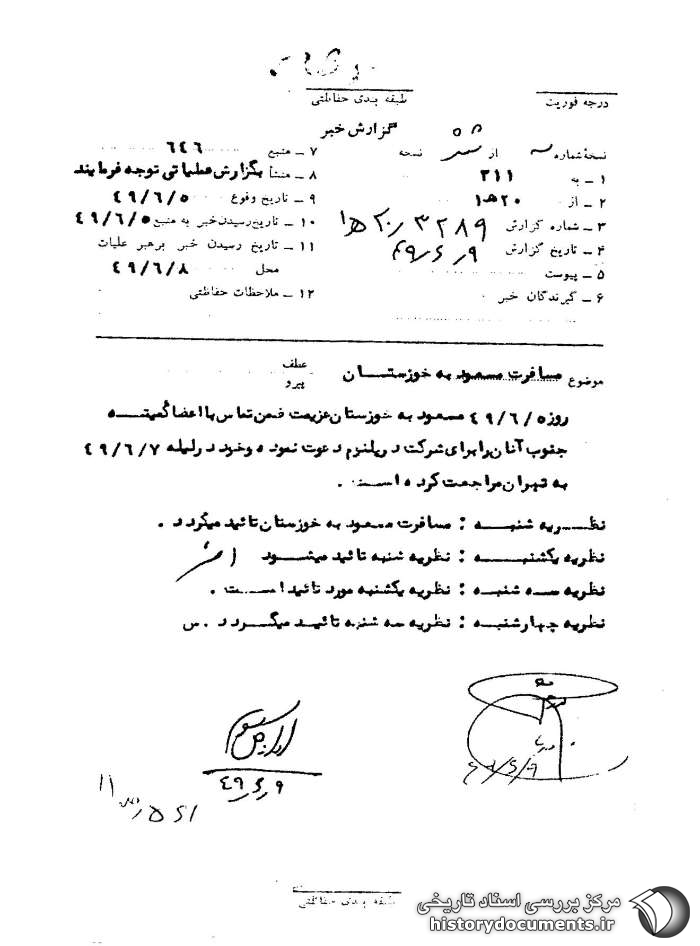 درجه فوریت
طبقه بندی حفاظتی
گزارش خبر
نسخهٔ شماره از نسخه
۱ ـ به ۳۱۱
۲ ـ از ۲۰ ه‍ ۱
۳ ـ شماره گزارش ۲۰/۳۲۸۹ ه‍ ۱
۴ ـ تاریخ گزارش ۴۹/۶/۹
۵ ـ پیوست
۶ ـ گیرندگان خبر
۷ ـ منبع ۶۴۶
۸ ـ منشأ بگزارش عملیاتی توجه فرمایند
۹ ـ تاریخ وقوع ۴۹/۶/۵
۱۰ ـ تاریخ رسیدن خبر به منبع ۴۹/۶/۵
۱۱ ـ تاریخ رسیدن خبر برهبر عملیات
محل ۴۹/۶/۸
۱۲ ـ ملاحظات حفاظتی
موضوع مسافرت مسعود به خوزستان
عطف
پیرو
روز ۴۹/۶/۵ مسعود به خوزستان عزیمت ضمن تماس با اعضا کمیته
جنوب آنان را برای شرکت در پلنوم دعوت نموده و خود در لیله ۴۹/۶/۷
به تهران مراجعت کرده است .
نظریه شنبه : مسافرت مسعود به خوزستان تائید میگردد .
نظریه یکشنبه : نظریه شنبه تائید میشود
نظریه سه شنبه : نظریه یکشنبه مورد تائید است .
نظریه چهارشنبه : نظریه سه شنبه تائید میگردد . س
۴۹/۶/۹
۴۹/۶/۹
طبقه بندی حفاظتی
مرکز بررسی اسناد تاریخی
historydocuments.ir